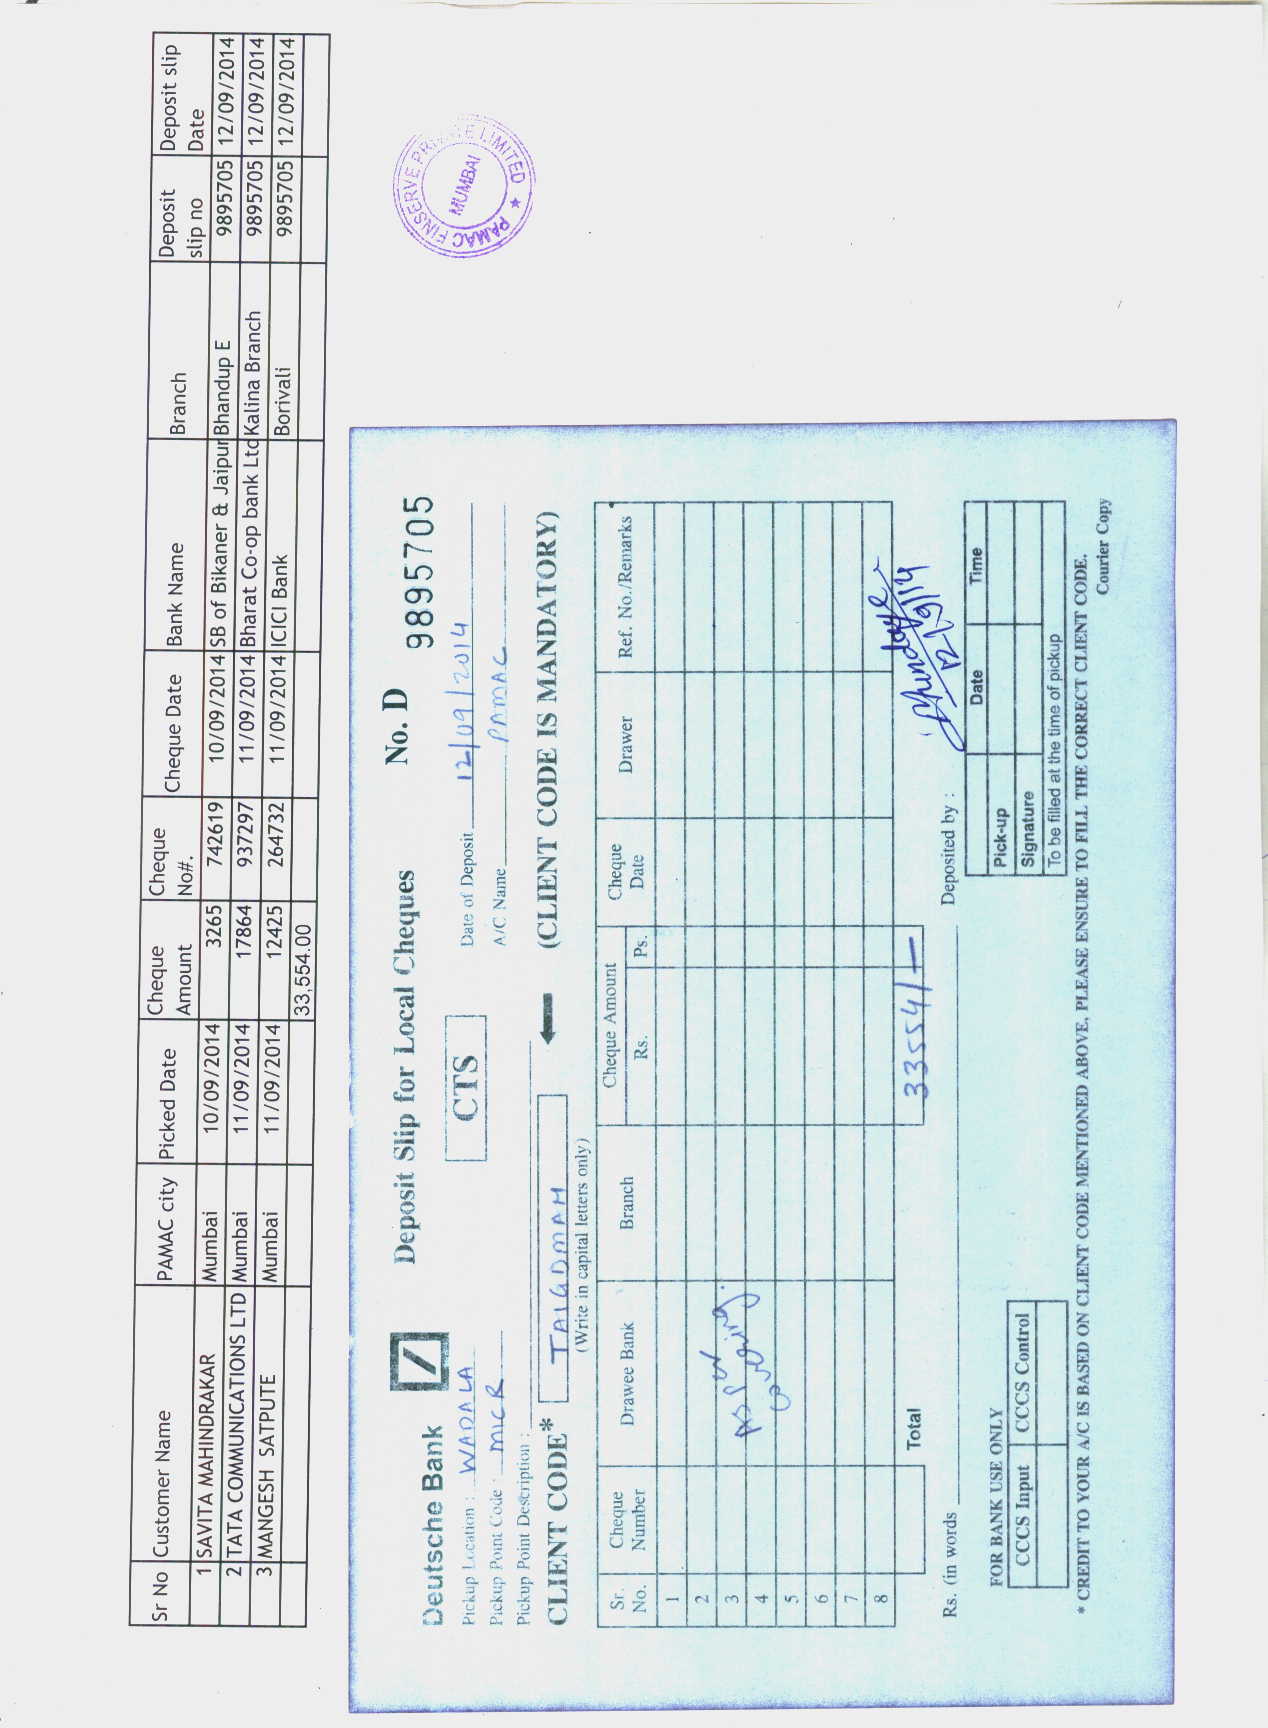 Sr No Customer Name PAMAC city Picked Date Cheque Amount Cheque No#. Cheque Date Bank Name Branch Deposit slip no Deposit slip Date
1 SAVITA MAHINDRAKAR Mumbai 10/09/2014 3265 742619 10/09/2014 SB of Bikaner & Jaipur Bhandup E 9895705 12/09/2014
2 TATA COMMUNICATIONS LTD Mumbai 11/09/2014 17864 937297 11/09/2014 Bharat Co-op bank Ltd Kalina Branch 9895705 12/09/2014
3 MANGESH SATPUTE Mumbai 11/09/2014 12425 264732 11/09/2014 ICICI Bank Borivali 9895705 12/09/2014
33,554.00
PAMAC FINSERVE PRIVATE LIMITED ★
MUMBAI
Deutsche Bank Deposit Slip for Local Cheques No. D 9895705
Pickup Location : WADALA CTS Date of Deposit 12/09/2014
Pickup Point Code : MICR A/C Name PAMAC
Pickup Point Description :
CLIENT CODE* TAIGDMAH (CLIENT CODE IS MANDATORY)
(Write in capital letters only)
Sr. No. Cheque Number Drawee Bank Branch Cheque Amount Rs. Ps. Cheque Date Drawer Ref. No./Remarks
1
2
3
4
5
6
7
8
As per
Total 33554/-
12/9/14
Rs. (in words Deposited by :
FOR BANK USE ONLY
CCCS Input CCCS Control
Date Time
Pick-up
Signature
To be filled at the time of pickup
* CREDIT TO YOUR A/C IS BASED ON CLIENT CODE MENTIONED ABOVE, PLEASE ENSURE TO FILL THE CORRECT CLIENT CODE.
Courier Copy